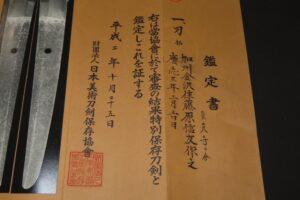 鑑定書
一、刀 銘
加州金沢住藤原信友作之
慶応三年二月六日
右は当協会に於て審査の結果特別保存刀剣と
鑑定しこれを証する
平成二年十月二十五日
財団法人 日本美術刀剣保存協會